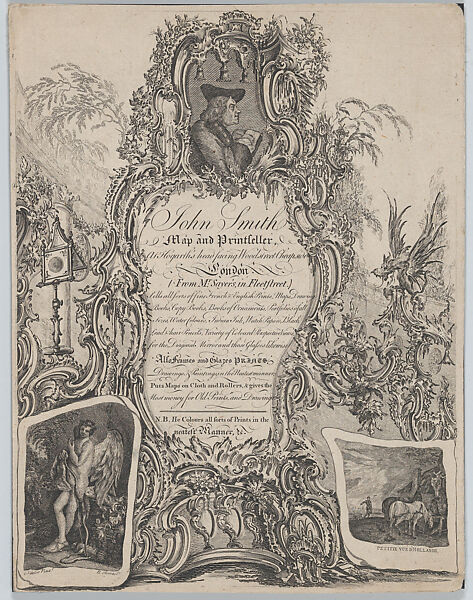 John Smith
Map and Printseller,
At Hogarth's head facing Wood street Cheapside
London
(From Mr. Sayer's, in Fleet street.)
Sells all sorts of fine French & English Prints, Maps, Drawing
Books, Copy Books, Books of Ornaments, Portfolios of all
Sizes, Water Colours, Indian Ink, Black
and Chalk Pencils, Variety of Colour'd Perspective Views
for the Diagonal Mirror and their Glasses likewise
Also Frames and Glazes PRINTS
Drawings, & Paintings in the Neatest manner
Puts Maps on Cloth and Rollers, & gives the
Most money for Old Prints, and Drawings
N.B. He Colours all sorts of Prints in the
neatest Manner, &c.
PETITTE VUE D'HOLLANDE